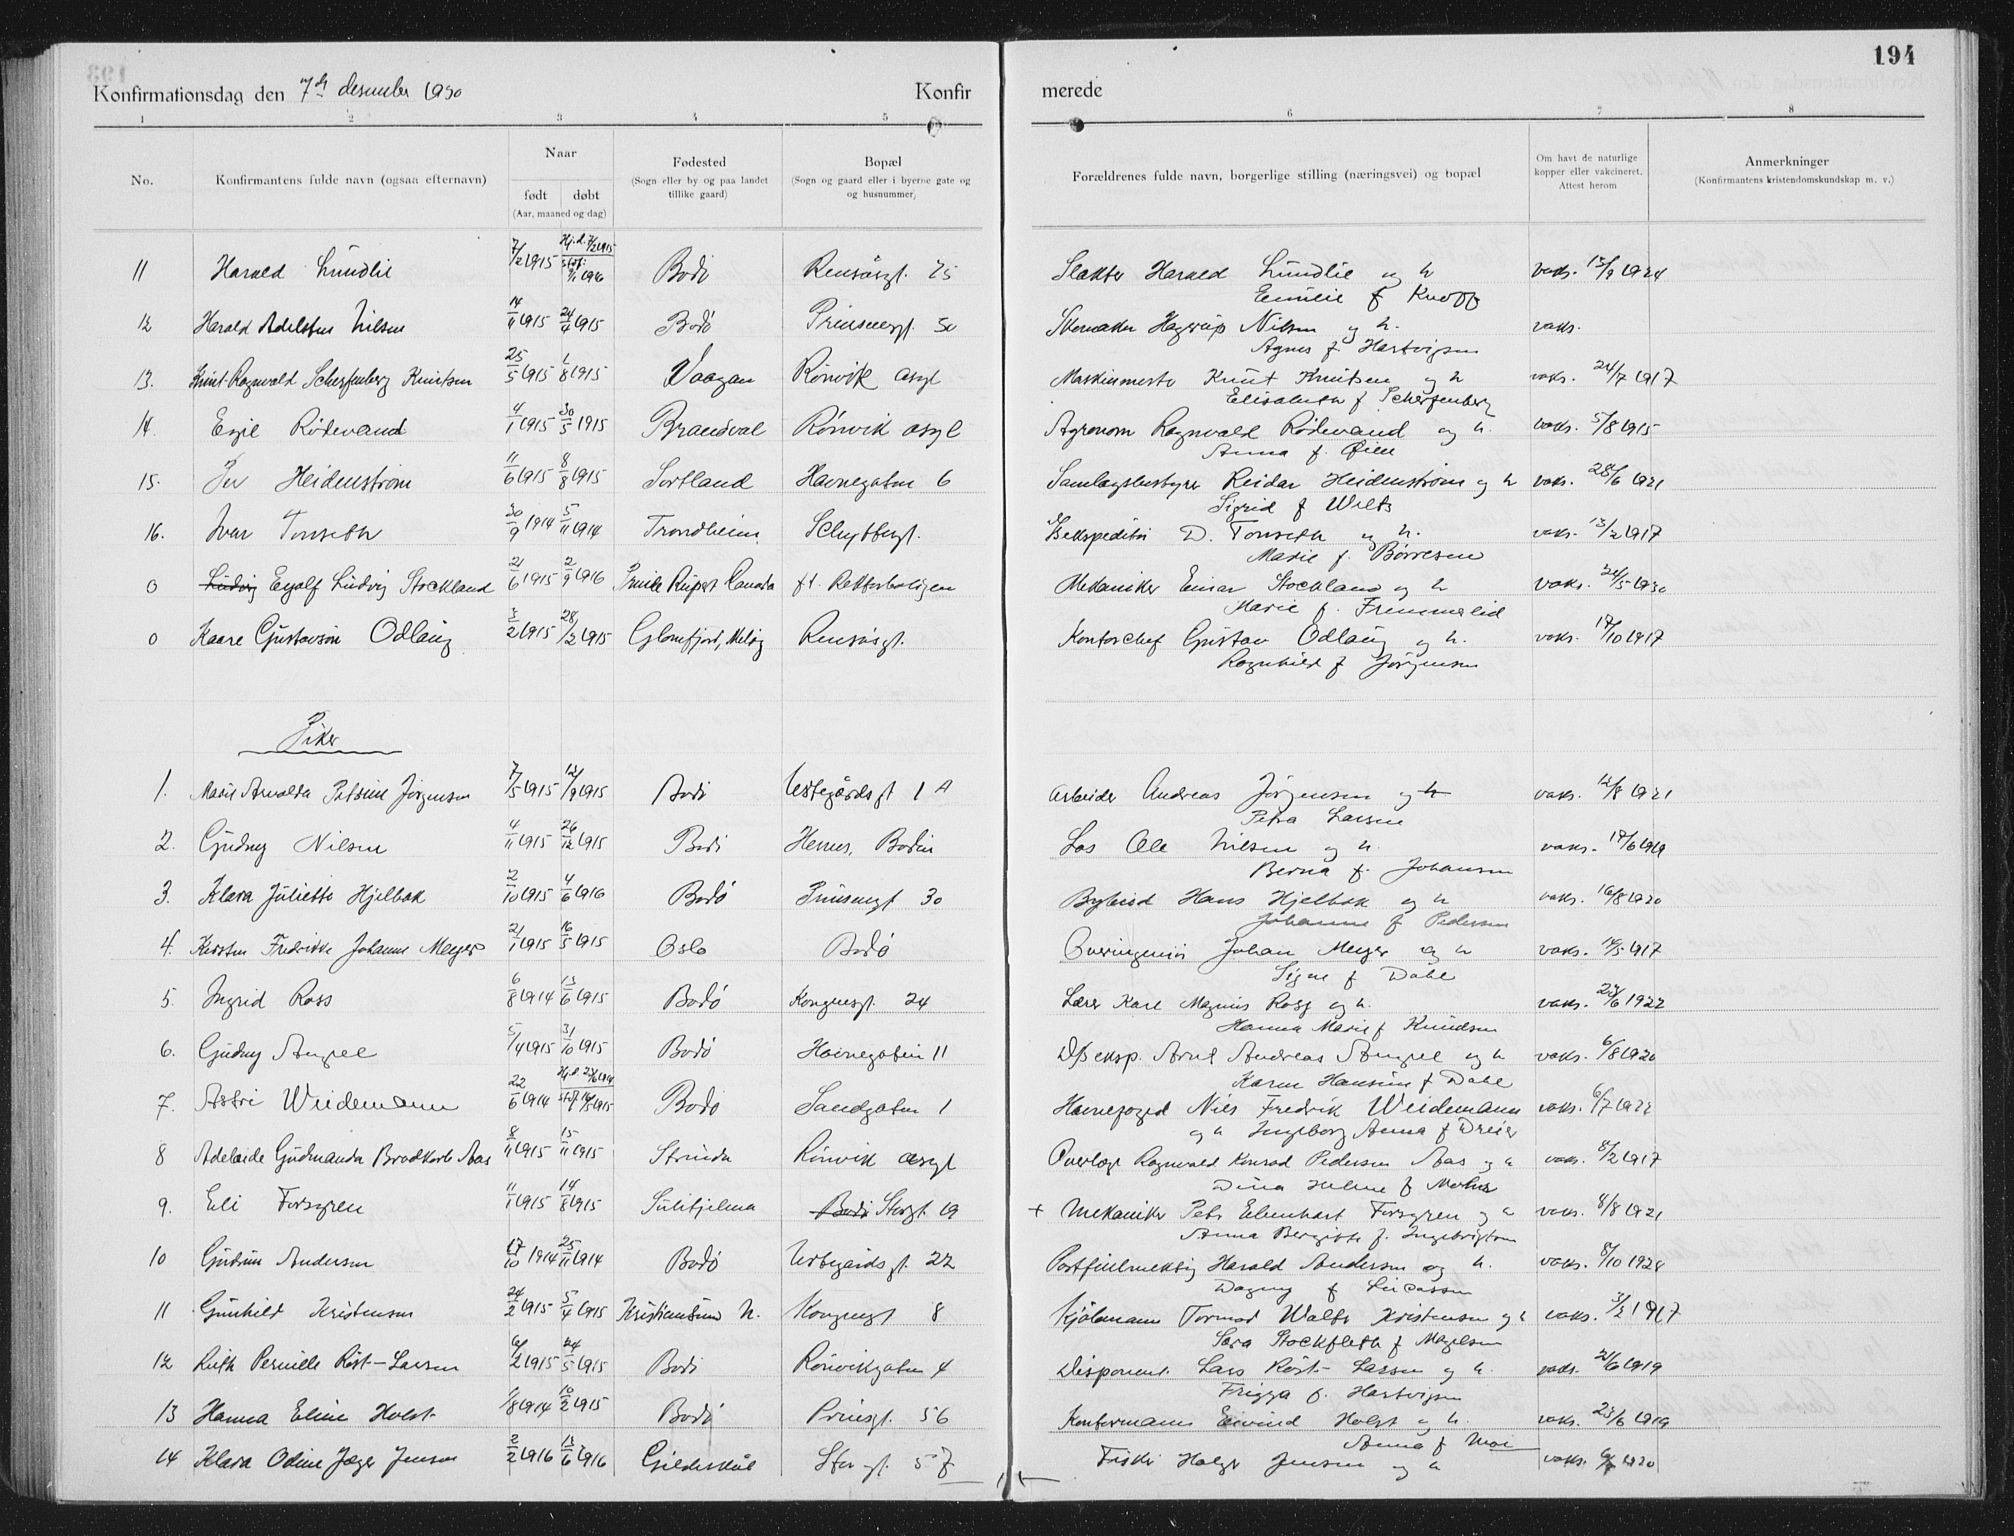 194
Konfirmationsdag den 7de desember 1930
Konfir
merede
1 2 3 4 5 6 7 8
No.
Konfirmantens fulde navn (ogsaa efternavn)
Naar
født døbt
(Aar, maaned og dag)
Fødested
(Sogn eller by og paa landet
tillike gaard)
Bopæl
(Sogn og gaard eller i byerne gate og
og husnummer)
Forældrenes fulde navn, borgerlige stilling (næringsvei) og bopæl
Om havt de naturlige
kopper eller vakcineret.
Attest herom
Anmerkninger
(Konfirmantens kristendomskundskap m. v.)
11 Harald Lundlie 7/2 1915 Hj.d. 7/2 1915 stadf. 9/1 1916 Bodø Rensåsgt. 75 Slakter Harald Lundlie og h vaks. 15/9 1924
Emilie f Knoff
12 Harald Adelsten Nilsen 14/4 1915 24/4 1915 Bodø Prinsensgt. 50 Skomaker Hagerup Nilsen og h. vaks.
Agnes f. Hartvigsen
13. Knut Ragnvald Scherfenberg Knutsen 25/5 1915 1/8 1915 Vaagan Rønvik asyl Maskinmester Knut Knutsen og h vaks. 24/7 1917
Elisabeth f Scherfenberg
14. Egil Rødevand 4/1 1915 30/5 1915 Brandval Rønvik asyl Agronom Ragnvald Rødevand og h. vaks. 5/8 1915
Anna f. Øien
15. Per Heidenstrøm 11/6 1915 8/8 1915 Sortland Havnegaten 6 Samlagsbestyrer Reidar Heidenstrøm og h vaks. 28/6 1921
Sigrid f Wilts
16. Ivar Tønseth 30/9 1914 5/11 1914 Trondheim Schyttesgt. Ekspeditør D. Tønseth og h. vaks. 13/2 1917
Marie f. Børresen
0 Eyolf Ludvig Stockland 21/6 1915 2/9 1916 Prince Rupert Canada ft. Rektorboligen Mekaniker Einar Stockland og h vaks. 24/5 1930
Marie f. Fremmerlid
0 Kaare Gustavson Odlaug 3/2 1915 28/2 1915 Glomfjord, Meløy Rensåsgt. Kontorchef Gustav Odlaug og h. vaks. 17/10 1917
Ragnhild f Jørgensen
Piker
1. Marie Arvalda Petrine Jørgensen 7/5 1915 12/9 1915 Bodø Ertegårdsgt 1 A Arbeider Andreas Jørgensen og h vaks. 12/8 1921
Petra Larsen
2. Gudny Nilsen 4/11 1915 26/12 1915 Bodø Hernes, Bodin Los Ole Nilsen og h. vaks. 17/6 1919
Berna f. Johansen
3. Klara Juliette Hjelbak 2/10 1915 4/6 1916 Bodø Prinsensgt 30 Bybud Hans Hjelbak og h vaks. 16/8 1920
Johanne f Pedersen
4. Kirsten Fredrikke Johanne Meyer 21/1 1915 16/5 1915 Oslo Bodø Overingeniør Johan Meyer og h vaks. 14/5 1917
Signe f Dahl
5. Ingrid Ross 6/8 1914 13/6 1915 Bodø Kongensgt. 24 Lærer Kare Magnus Ross og h. vaks. 23/6 1922
Hanna Marie f Knudsen
6. Gudny Angel 5/4 1915 31/10 1915 Bodø Havnegaten 11 D/s eksp. Arnt Andreas Angel og h vaks. 6/8 1920
Karen Hansine f Dahl
7. Astri Weidemann 22/6 1914 Bodø Sandgaten 1 Havnefoged Nils Fredrik Weidemann vaks. 6/7 1922
og h Ingeborg Anna f Dreier
8 Adelaide Gudmanda Brodkorb Aas 8/11 1915 15/11 1915 Strinda Rønvik asyl Overlæge Ragnvald Konrad Pedersen Aas og h vaks. 8/2 1917
Dina Helene f Mohus
9. Eli Forsgren 11/1 1915 14/8 1915 Sulitjelma Bodø Storgt. 19 + Mekaniker Peter Edenhart Forsgren og h vaks. 8/8 1921
Anna Bergitte f. Ingebrigtsen
10 Gudrun Andersen 17/10 1914 25/11 1914 Bodø Ertegårdsgt. 22 Postfullmektig Harald Andersen og h. vaks. 8/10 1928
Dagny f Lucassen
11 Gunhild Kristensen 24/2 1915 5/4 1915 Kristiansund N. Kongensgt 8 Kjøbmann Tormod Walter Kristensen og h vaks. 3/2 1917
Sara Stockfleth f Magelsen
12 Ruth Pernille Røst-Larsen 6/2 1915 24/5 1915 Bodø Rønvikgaten 4 Disponent Lars Røst-Larsen og h. vaks. 21/6 1919
Frigga f. Hartvigsen
13 Hanna Eline Holst 1/8 1914 10/2 1915 Bodø Prinsgt. 56 Kontormann Eivind Holst og h. vaks. 23/6 1919
Anna f Moe
14 Klara Odine Jæger Jensen 2/2 1916 13/6 1916 Gildeskål Storgt. 57 Fisker Holger Jensen og h vaks. 1920